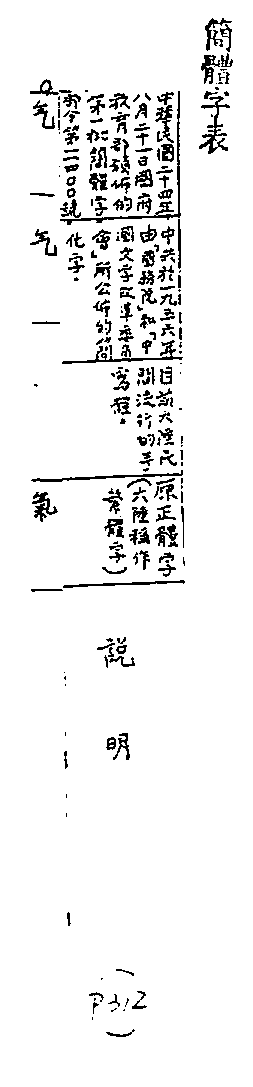 簡體字表
中華民國二十四年
八月二十一日國府
教育部頒佈的
第一批簡體字
部令第一一四〇〇號
中共於一九五六年
由「國務院」和「中
國文字改革委員
會」所公佈的簡
化字。
目前大陸民
間流行的手
寫體。
原正體字
(大陸稱作
繁體字)
說明
气
气
氣
(P312)